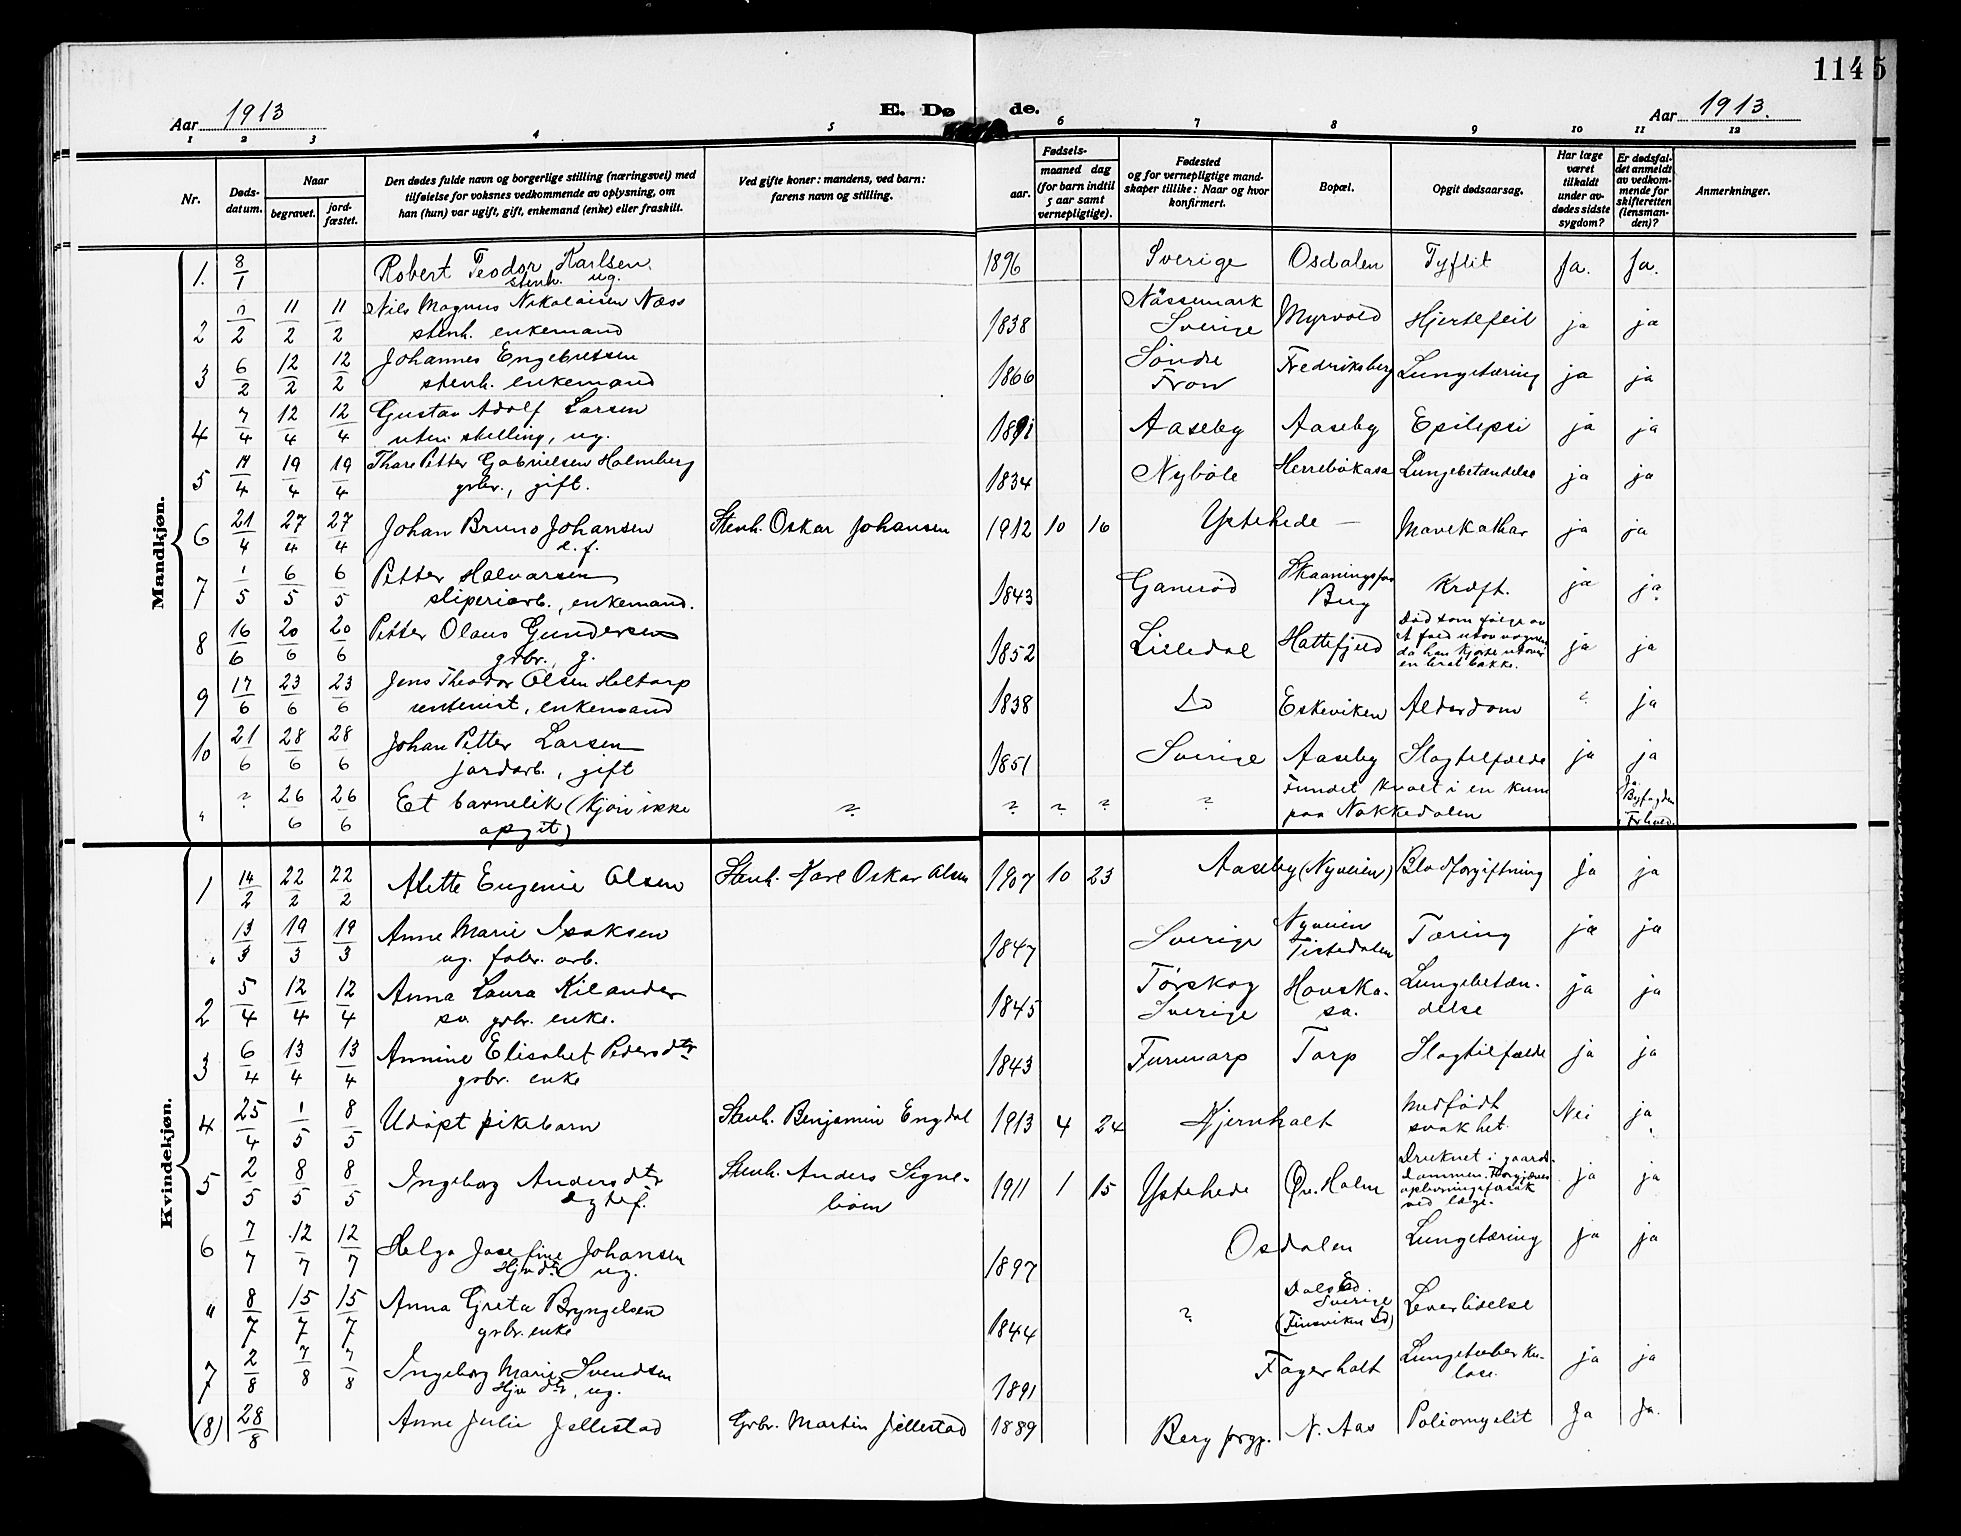 114 5
Aar 1913
E. Dø de.
Aar 1913.
1 2 3 4 5 6 7 8 9 10 11 12
Nr.
Døds-
datum.
Naar
begravet.
jord-
fæstet.
Den dødes fulde navn og borgerlige stilling (næringsvei) med
tilføielse for voksnes vedkommende av oplysning, om
han (hun) var ugift, gift, enkemand (enke) eller fraskilt.
Ved gifte koner: mandens, ved barn:
farens navn og stilling.
Fødsels-
aar.
maaned dag
(for barn indtil
5 aar samt
vernepligtige).
Fødested
og for vernepligtige mand-
skaper tillike: Naar og hvor
konfirmert.
Bopæl.
Opgit dødsaarsag.
Har læge
været
tilkaldt
under av-
dødes sidste
sygdom?
Er dødsfal-
det anmeldt
av vedkom-
mende for
skifteretten
(lensman-
den)?
Anmerkninger.
Mandkjøn.
1. 8/1 Robert Teodor Karlsen 1896 Sverige Osdalen Tyflit Ja. Ja.
stenh. ug.
2 /2 11/2 11/2 Nils Magnus Nikolaisen Næss 1838 Nössemark Myrvold Hjertefeil ja ja
stenh. enkemand Sverige
3 6/2 12/2 12/2 Johannes Engebretsen 1866 Söndre Fredriksberg Lungetæring ja ja
stenh. enkemand Fron
4 7/4 12/4 12/4 Gustav Adolf Larsen 1891 Aaseby Aaseby Epilepsi ja ja
uten stilling, ug.
5 14/4 19/4 19/4 Thore Petter Gabrielsen Holmberg 1834 Nyböle Herrebökasa Lungebetændelse ja ja
grbr., gift.
6 21/4 27/4 27/4 Johan Bruno Johansen Stenh. Oskar Johansen 1912 10 16 Ystehede — Mavekathar ja ja
d. f.
7 1/5 6/5 6/5 Petter Halvorsen 1843 Ganeröd Skaaningsfos Kræft. ja ja.
sliperiarb., enkemand. Berg
8 16/6 20/6 20/6 Petter Olaus Gundersen 1852 Lilledal Hattefjeld Död som følge av ja ja
grbr., g. et fald utov vognen
da han kjörte utover
en brat bakke.
9 17/6 23/6 23/6 Jens Theodor Olsen Holtorp 1838 Do Eskeviken Alderdom ? ja
rentenist, enkemand
10 21/6 28/6 28/6 Johan Petter Larsen 1851 Sverige Aaseby Slagtilfælde ja ja
jordarb., gift
" ? 26/6 26/6 Et barnelik (kjön ikke ? ? ? ? ? Fundet kvalt i en kum Ja.
opgit) paa Nakkedalen Byfogden
i Frhald.
Kvindekjøn.
1 14/2 22/2 22/2 Alette Eugenie Olsen Stenh. Karl Oskar Olsen 1907 10 23 Aaseby (Nyveien) Blodforgiftning ja ja
" 13/3 19/3 19/3 Anne Marie Isaksen 1847 Sverige Nyveien Tæring ja ja
ug. fabr. arb. Tistedalen
2 5/4 12/4 12/4 Anna Laura Kilander 1845 Törskog Hovska- Lungebetæn- ja ja
sv. grbr. enke. Sverige sa. delse
3 6/4 13/4 13/4 Annine Elisabet Pedersdtr 1843 Furutorp Torp Slagtilfælde ja ja
grbr. enke
4 25/4 1/5 8/5 Udöpt pikebarn Stenh. Benjamin Engdal 1913 4 24 Kjernholt Medfödt Nei ja.
svakhet.
5 2/5 8/5 8/5 Ingeborg Andersdtr Stenh. Anders Signe- 1911 1 15 Ystehede Öv. Holm Druknet i gaards- ja ja
ægtef. böen dammen. Forgjæves
oplivningsforsök
ved læge.
6 7/7 12/7 12/7 Helga Josefine Johansen 1897 Osdalen Lungetæring ja ja
Hjv. dtr ug.
" 8/7 15/7 15/7 Anna Greta Bryngelsen 1844 ? Dals Ed Leverlidelse
grbr. enke Sverige
(Finsviken Id)
7 2/8 7/8 7/8 Ingeborg Marie Svendsen 1891 Fagerholt Lungetuberku- ja ja
Hjv. dtr, ug. lose.
(8) 28/8 Anne Julie Jellestad Grbr. Martin Jellestad 1889 Berg prgj. N. Aas Poliomyelit Ja Ja.